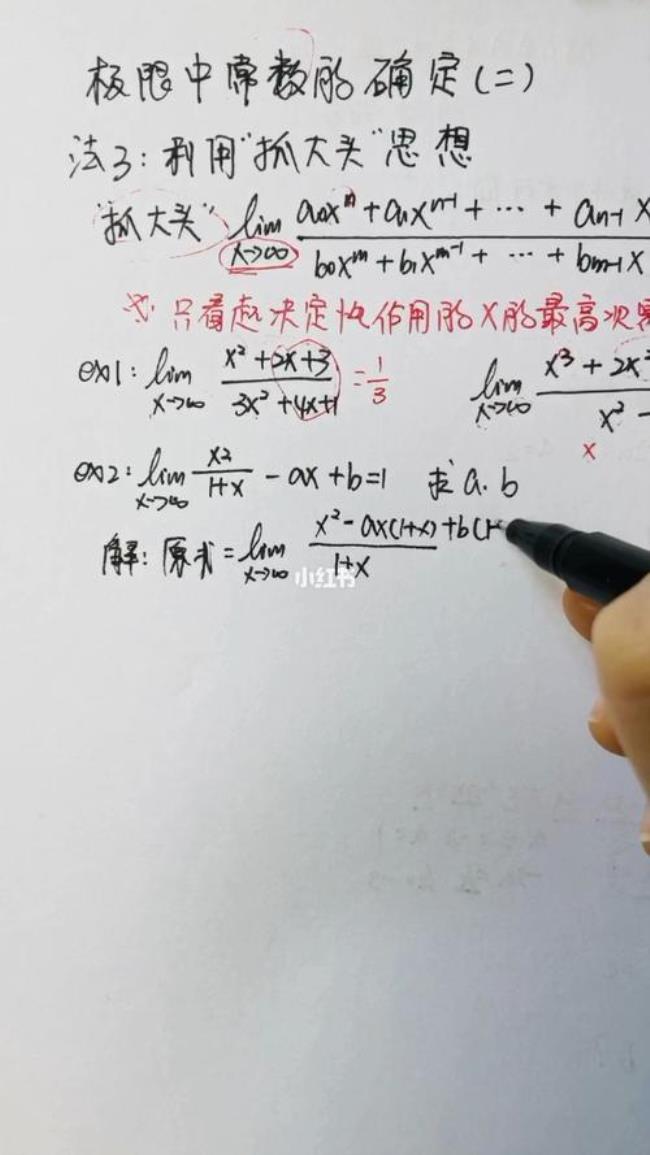 极限中常数的确定(二)
法3:利用"抓大头"思想
"抓大头" lim x→∞ (a₀xⁿ + a₁xⁿ⁻¹ + ··· + aₙ₋₁x / b₀xᵐ + b₁xᵐ⁻¹ + ··· + bₘ₋₁x
只看起决定性作用的X的最高次幂
ex1: lim x→∞ (x²+2x+3)/(3x²+4x+1) = 1/3 lim x→∞ x³+2x² / x² -
x
ex2: lim x→∞ x²/(1+x) - ax + b = 1 求a.b
解: 原式 = lim x→∞ x² - ax(1+x) + b(1 / 1+x
小红书